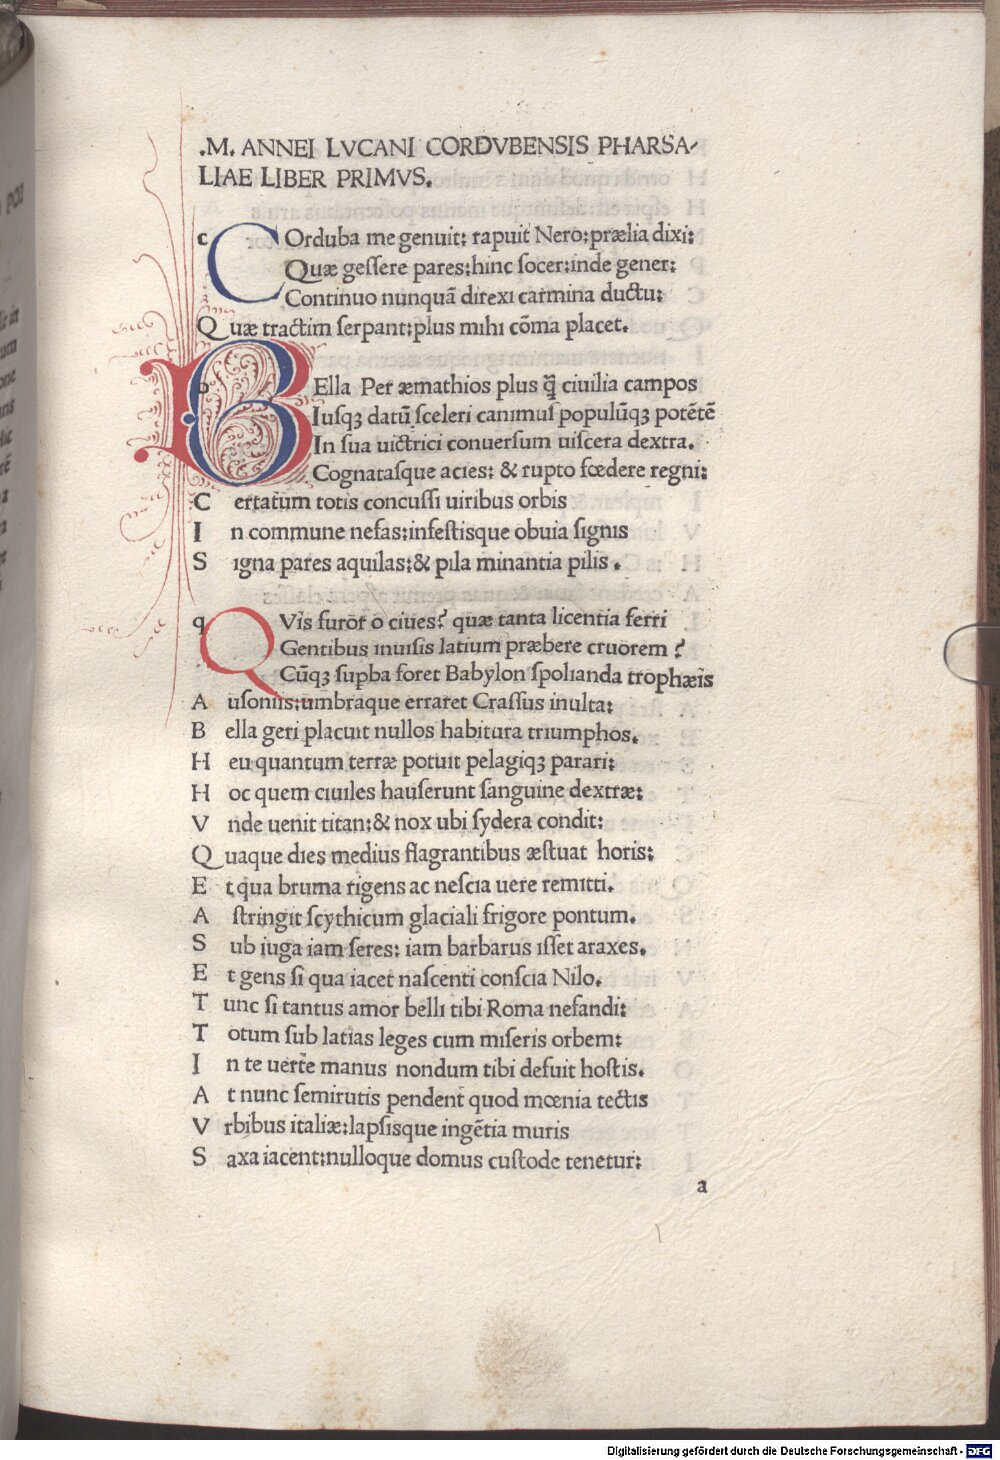 .M. ANNEI LVCANI CORDVBENSIS PHARSA-
LIAE LIBER PRIMVS.
COrduba me genuit: rapuit Nero: prælia dixi:
Quæ geſſere pares: hinc ſocer: inde gener:
Continuo nunquã direxi carmina ductu:
Quæ tractim ſerpant: plus mihi cõma placet.
BElla Per æmathios plus q̃ ciuilia campos
Iuſqꝫ datũ ſceleri canimuſ populũqꝫ potẽtẽ
In ſua uictrici conuerſum uiſcera dextra.
Cognataſque acies: & rupto fœdere regni:
C ertatum totis concuſſi uiribus orbis
I n commune nefas: infeſtisque obuia ſignis
S igna pares aquilas: & pila minantia pilis.
QVis furor o ciues? quæ tanta licentia ferri
Gentibus inuiſis latium præbere cruorem?
Cũqꝫ ſupba foret Babylon ſpolianda trophæis
A uſoniis: umbraque erraret Craſſus inulta:
B ella geri placuit nullos habitura triumphos.
H eu quantum terræ potuit pelagiqꝫ parari:
H oc quem ciuiles hauſerunt ſanguine dextræ:
V nde uenit titan: & nox ubi ſydera condit:
Q uaque dies medius flagrantibus æſtuat horis:
E t qua bruma rigens ac neſcia uere remitti.
A ſtringit ſcythicum glaciali frigore pontum.
S ub iuga iam ſeres: iam barbarus iſſet araxes.
E t gens ſi qua iacet naſcenti conſcia Nilo.
T unc ſi tantus amor belli tibi Roma nefandi:
T otum ſub latias leges cum miſeris orbem:
I n te uerte manus nondum tibi defuit hoſtis.
A t nunc ſemirutis pendent quod mœnia tectis
V rbibus italiæ: lapſisque ingẽtia muris
S axa iacent: nulloque domus cuſtode tenetur:
a
Digitalisierung gefördert durch die Deutsche Forschungsgemeinschaft - DFG